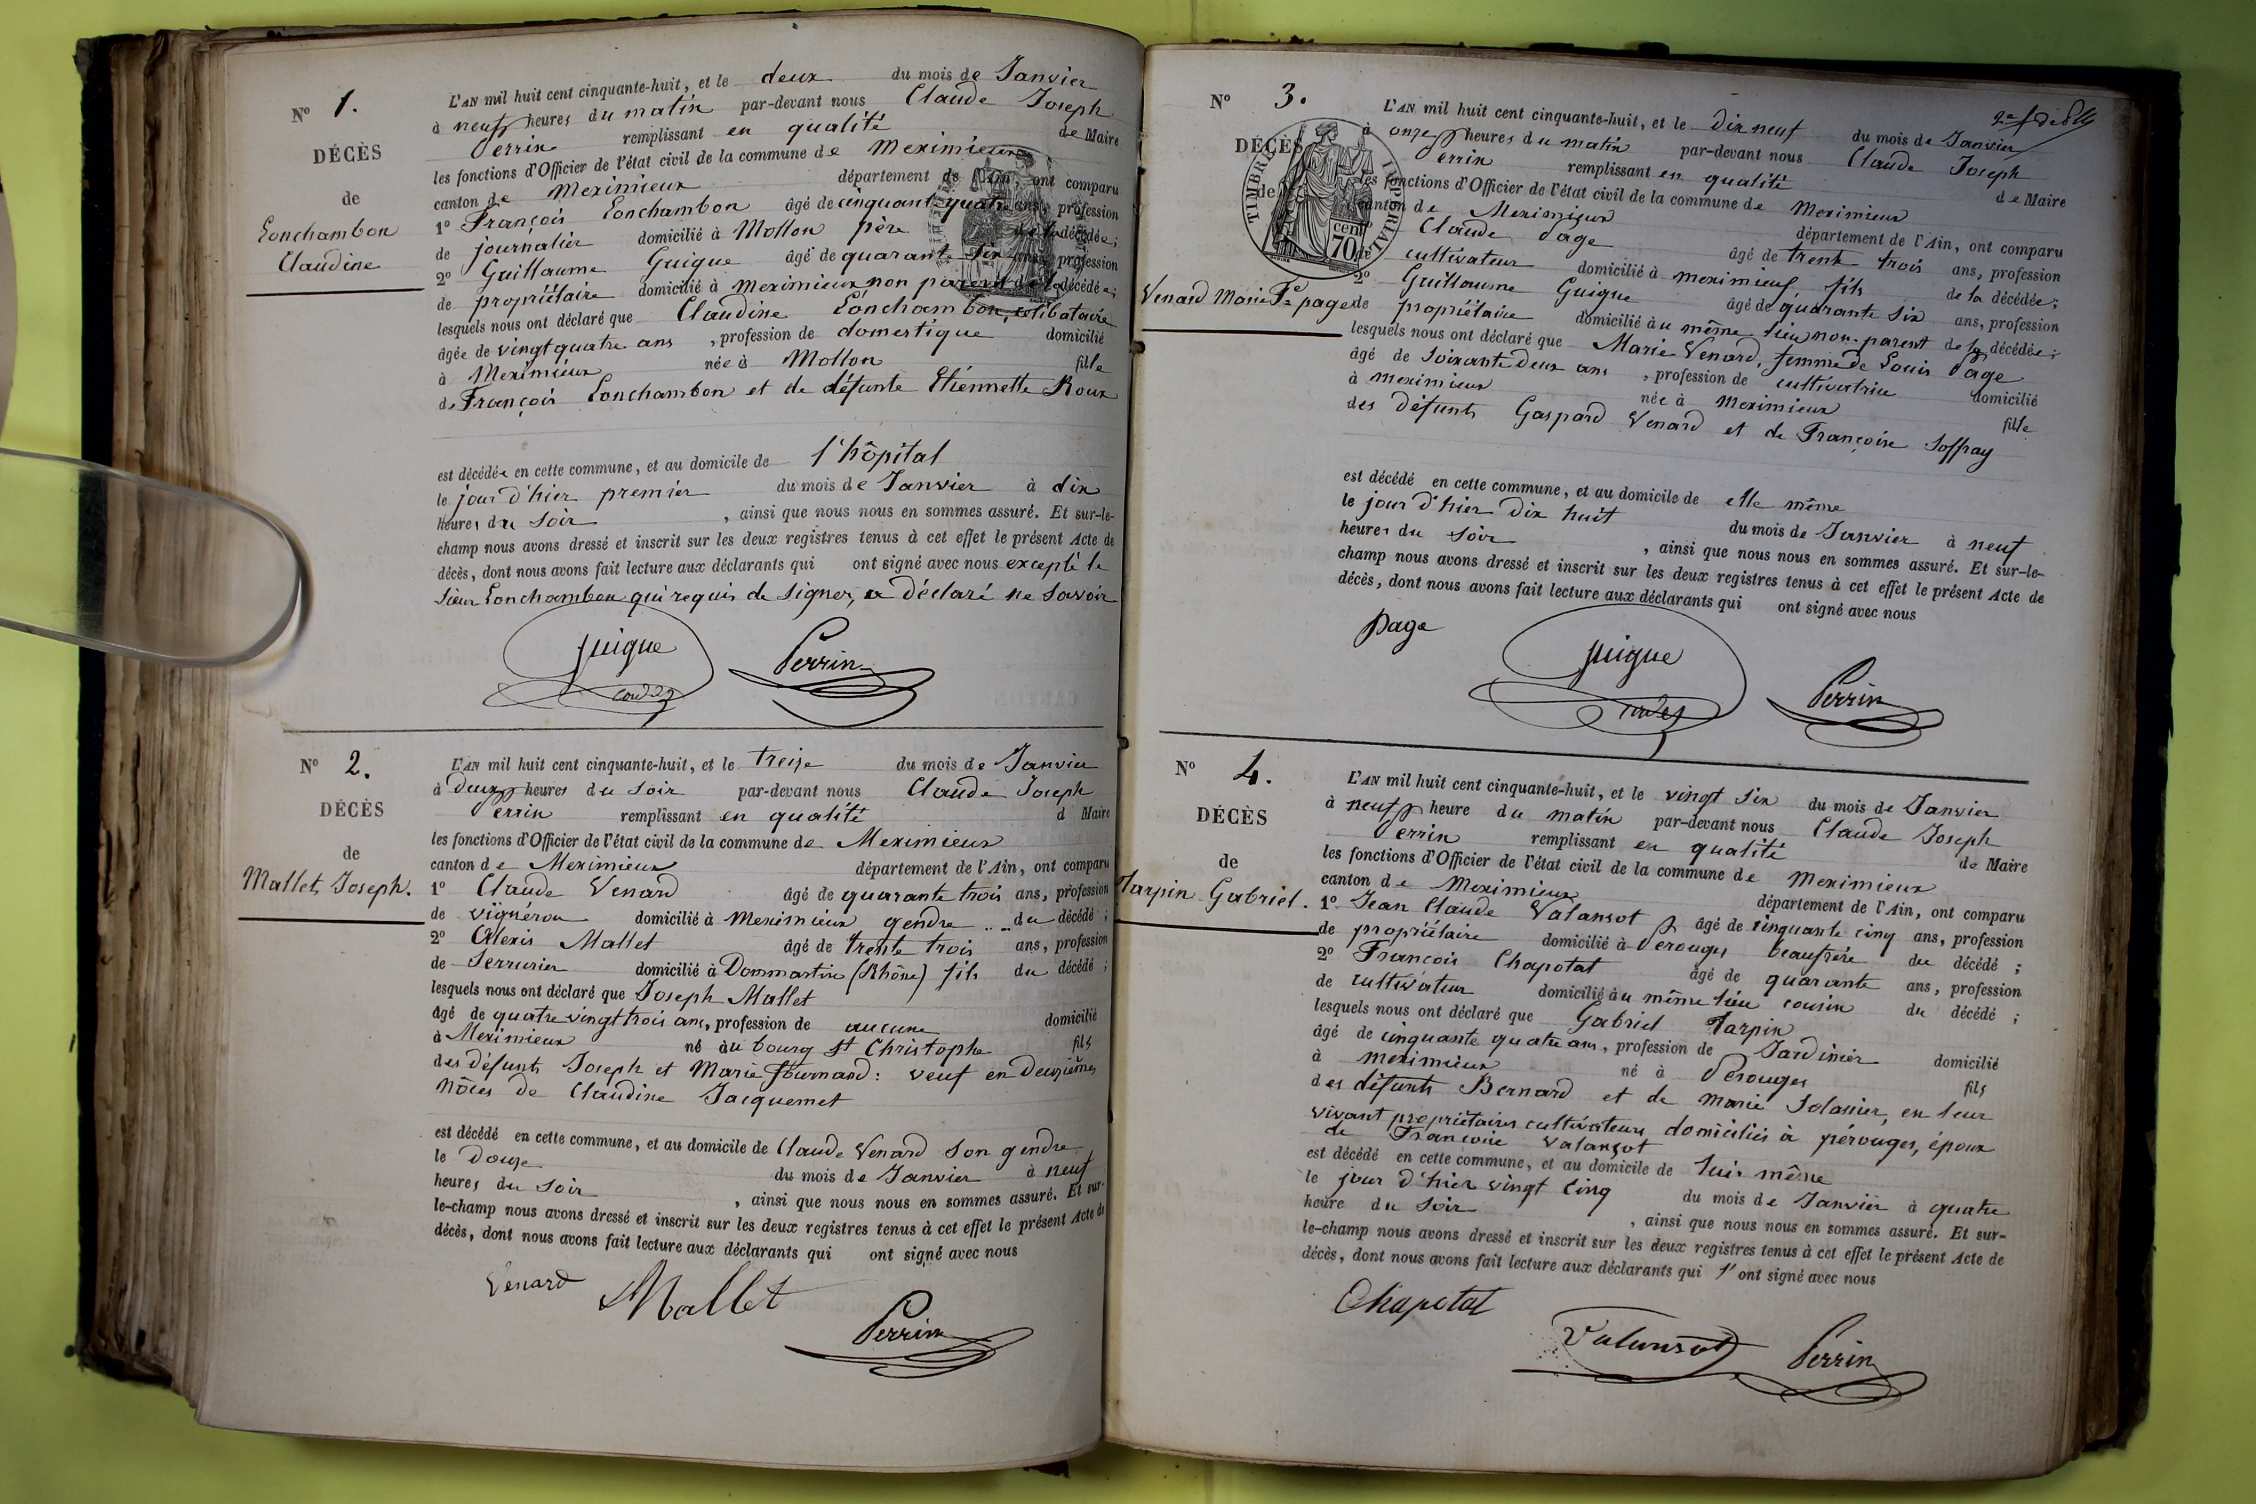 N° 1.
DÉCÈS
de
Lonchambon
Claudine
L'AN mil huit cent cinquante-huit, et le deux du mois de Janvier
à neuf heures du matin par-devant nous Claude Joseph
Perrin remplissant en qualité de Maire
les fonctions d'Officier de l'état civil de la commune de Meximieux
canton de Meximieux département de l'Ain, ont comparu
1° François Lonchambon âgé de cinquant quatre ans, profession
de journalier domicilié à Mollon père de la décédée;
2° Guillaume Guigue âgé de quarante six ans, profession
de propriétaire domicilié à Meximieux non parent de la décédée;
lesquels nous ont déclaré que Claudine Lonchambon, célibataire
âgée de vingt quatre ans, profession de domestique domicilié
à Meximieux née à Mollon fille
de François Lonchambon et de défunte Etiennette Roux
est décédée en cette commune, et au domicile de l'hôpital
le jour d'hier premier du mois de Janvier à dix
heures du soir, ainsi que nous nous en sommes assuré. Et sur-le-
champ nous avons dressé et inscrit sur les deux registres tenus à cet effet le présent Acte de
décès, dont nous avons fait lecture aux déclarants qui ont signé avec nous excepté le
sieur Lonchambon qui requis de signer, a déclaré ne savoir
guigue
Perrin
N° 2.
DÉCÈS
de
Mallet, Joseph.
L'AN mil huit cent cinquante-huit, et le treize du mois de Janvier
à deux heures du soir par-devant nous Claude Joseph
Perrin remplissant en qualité d Maire
les fonctions d'Officier de l'état civil de la commune de Meximieux
canton de Meximieux département de l'Ain, ont comparu
1° Claude Venard âgé de quarante trois ans, profession
de vignéron domicilié à Meximieux gendre du décédé;
2° Alexis Mallet âgé de trente trois ans, profession
de Serrurier domicilié à Dommartin (Rhône) fils du décédé;
lesquels nous ont déclaré que Joseph Mallet
âgé de quatre vingt trois ans, profession de aucune domicilié
à Meximieux né au bourg St Christophe fils
des défunts Joseph et Marie fournand: veuf en deuxièmes
nôces de Claudine Jacquemet
est décédé en cette commune, et au domicile de Claude Venard son gendre
le douze du mois de Janvier à neuf
heures du soir, ainsi que nous nous en sommes assuré. Et sur-
le-champ nous avons dressé et inscrit sur les deux registres tenus à cet effet le présent Acte de
décès, dont nous avons fait lecture aux déclarants qui ont signé avec nous
Venard
Mallet
Perrin
N° 3.
DÉCÈS
de
Venard Marie Fe page
TIMBRE IMPERIAL
cent
70
L'AN mil huit cent cinquante-huit, et le dix neuf du mois de Janvier
à onze heures du matin par-devant nous Claude Joseph
Perrin remplissant en qualité de Maire
les fonctions d'Officier de l'état civil de la commune de Meximieux
canton de Meximieux département de l'Ain, ont comparu
Claude Page âgé de trente trois ans, profession
de cultivateur domicilié à Meximieux fils de la décédée;
2° Guillaume Guigue âgé de quarante six ans, profession
de propriétaire domicilié au même lieu non-parent de la décédée;
lesquels nous ont déclaré que Marie Venard, femme de Louis Page
âgé de soixante deux ans, profession de cultivatrice domicilié
à meximieux née à Meximieux fille
des défunts Gaspard Venard et de Françoise Joffray
est décédé en cette commune, et au domicile de elle même
le jour d'hier dix huit du mois de Janvier à neuf
heures du soir, ainsi que nous nous en sommes assuré. Et sur-le-
champ nous avons dressé et inscrit sur les deux registres tenus à cet effet le présent Acte de
décès, dont nous avons fait lecture aux déclarants qui ont signé avec nous
page
guigue
Perrin
N° 4.
DÉCÈS
de
Tarpin Gabriel.
L'AN mil huit cent cinquante-huit, et le vingt six du mois de Janvier
à neuf heure du matin par-devant nous Claude Joseph
Perrin remplissant en qualité de Maire
les fonctions d'Officier de l'état civil de la commune de Meximieux
canton de Meximieux département de l'Ain, ont comparu
1° Jean Claude Valansot âgé de cinquante cinq ans, profession
de propriétaire domicilié à Perouges beaufrère du décédé;
2° François Chapotat âgé de quarante ans, profession
de cultivateur domicilié au même lieu cousin du décédé;
lesquels nous ont déclaré que Gabriel Tarpin
âgé de cinquante quatre ans, profession de Jardinier domicilié
à Meximieux né à Perouges fils
des défunts Bernard et de Marie Solasier, en leur
vivant propriétaires cultivateurs domiciliés à pérouges, époux
de Françoise Valansot
est décédé en cette commune, et au domicile de lui même
le jour d'hier vingt cinq du mois de Janvier à quatre
heure du soir, ainsi que nous nous en sommes assuré. Et sur-
le-champ nous avons dressé et inscrit sur les deux registres tenus à cet effet le présent Acte de
décès, dont nous avons fait lecture aux déclarants qui l'ont signé avec nous
Chapotat
Valansot
Perrin